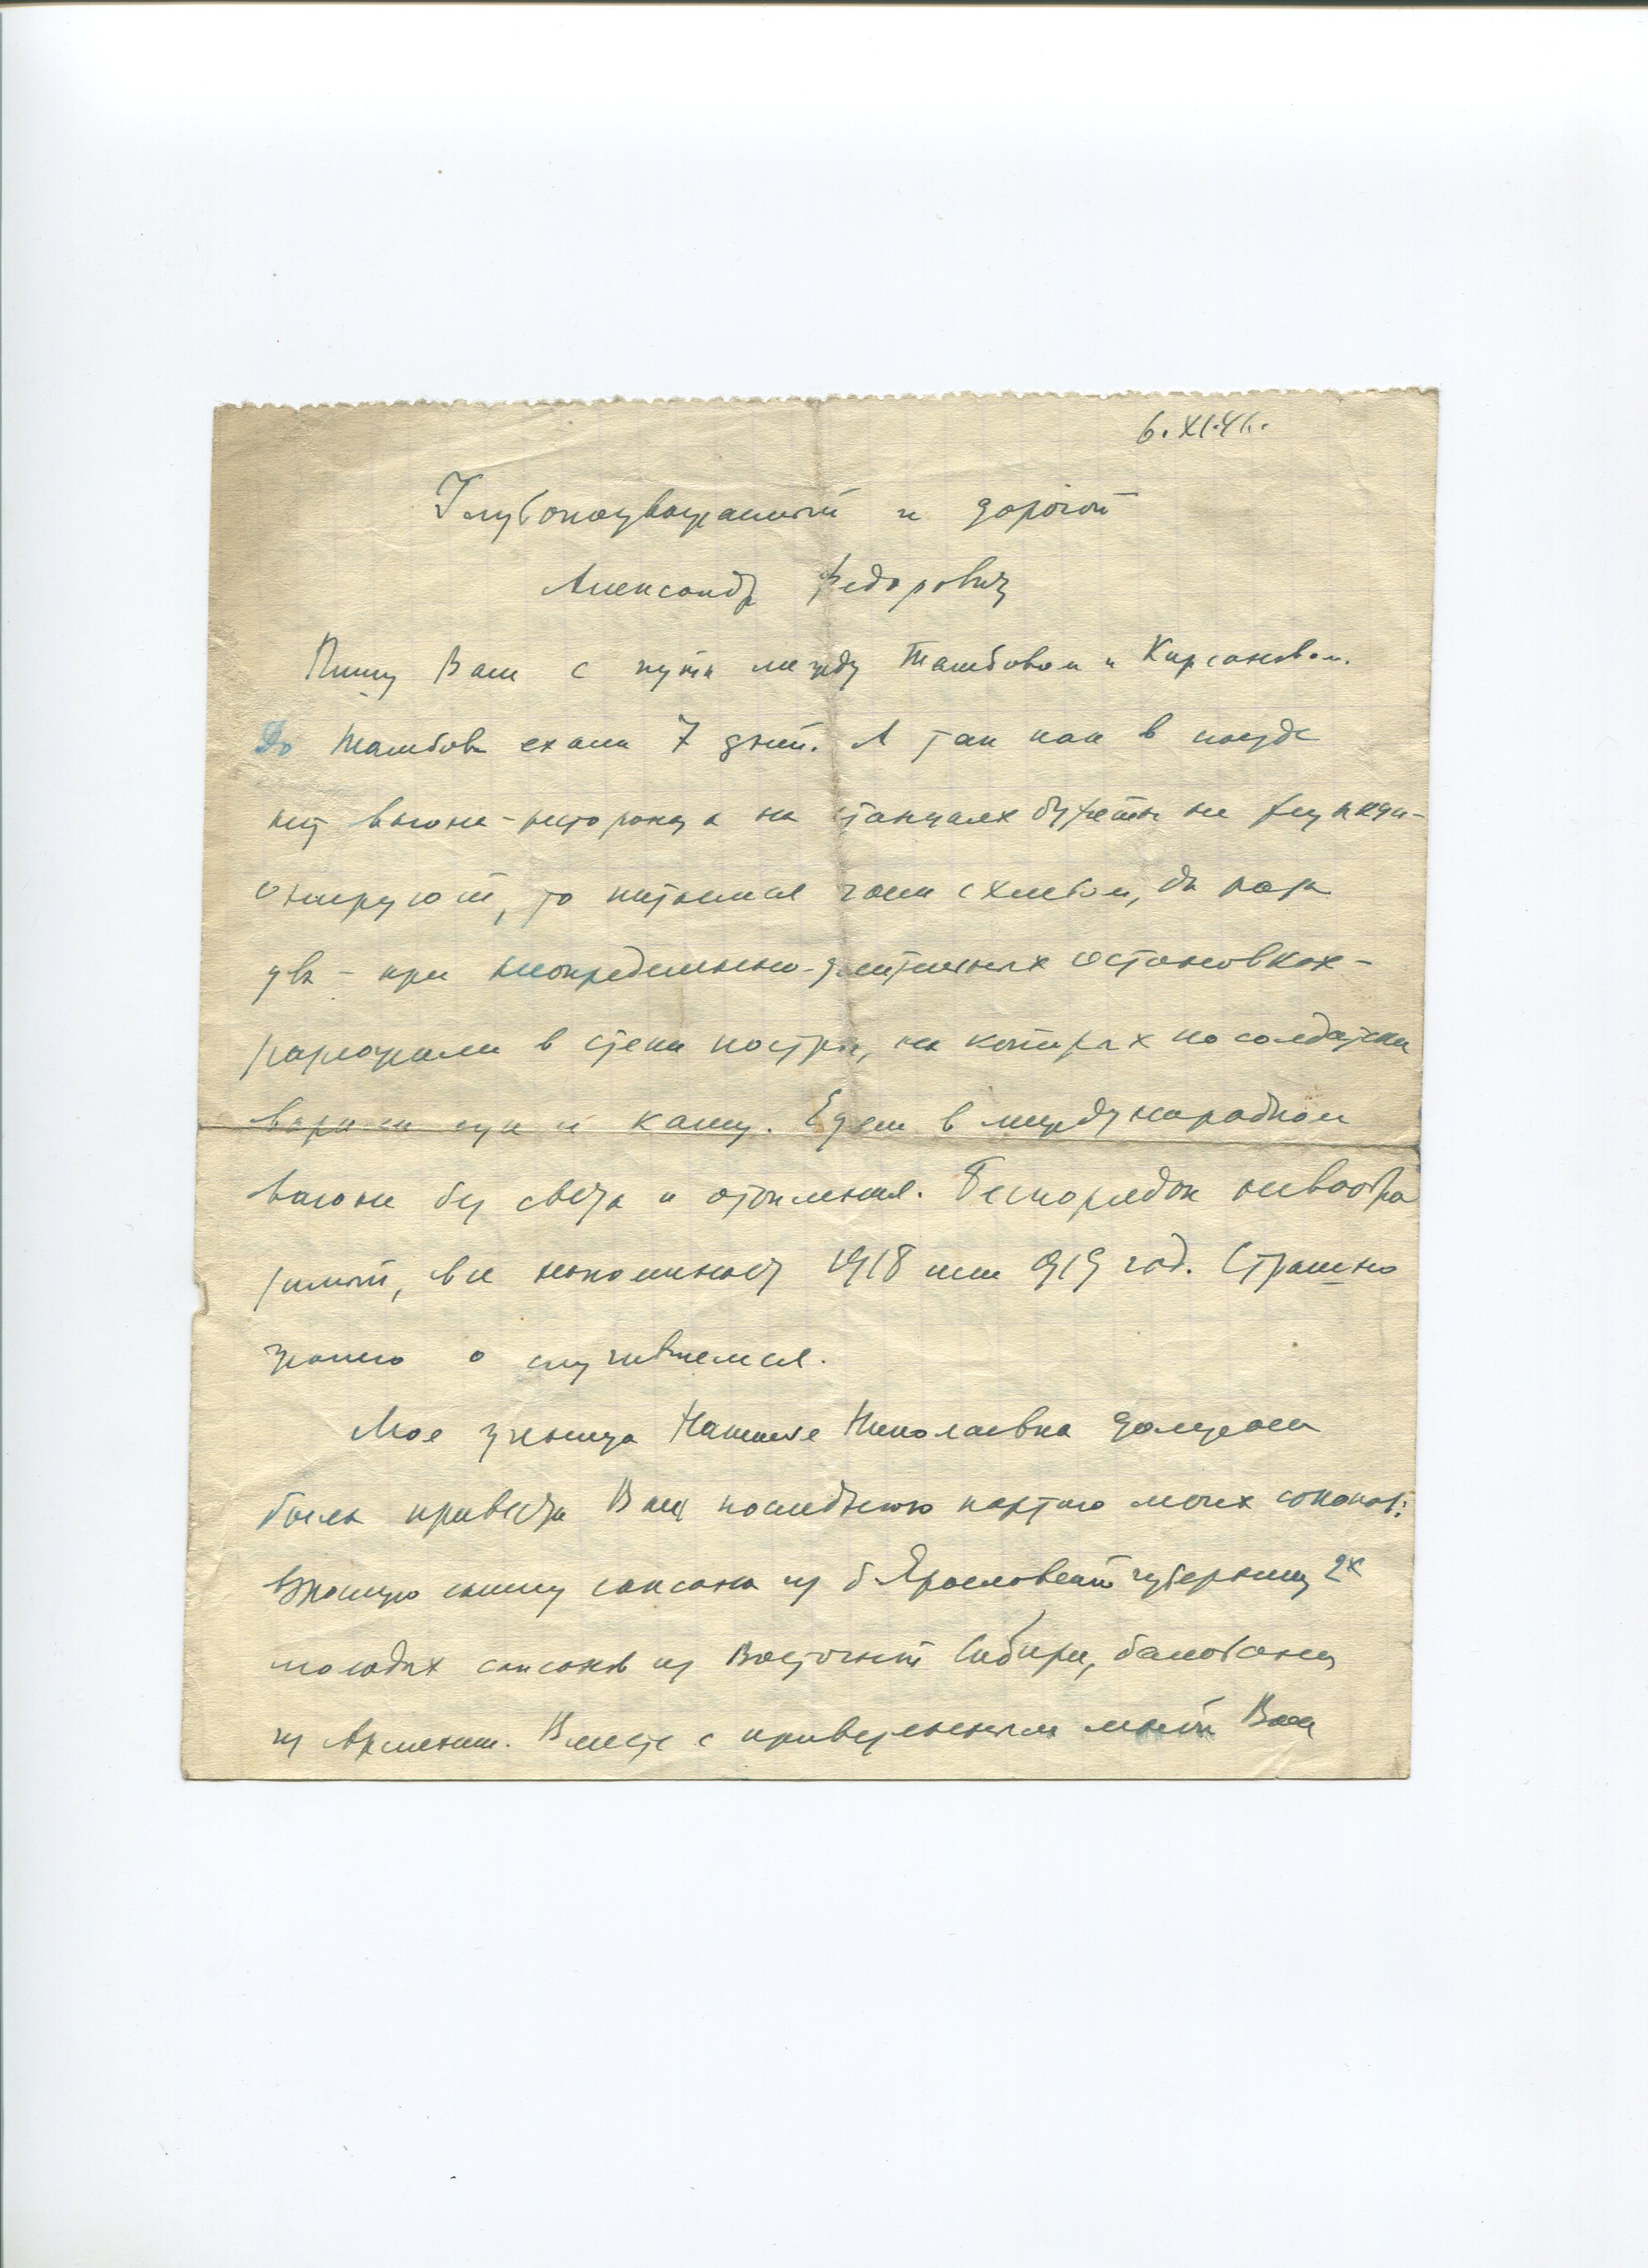 6.XI.41.
Глубокоуважаемый и дорогой
Александр Федорович
Пишу Вам с пути между Тамбовом и Кирсановом.
До Тамбова ехали 7 дней. А так как в поезде
нет вагона-ресторана, а на станциях буфеты не функци-
онируют, то питаемся чаем с хлебом, да раза
два – при неопределенно-длительных остановках –
разложили в степи костры, на которых по солдатски
варили щи и кашу. Едем в международном
вагоне без света и отопления. Беспорядок невообра
зимый, все напоминает 1918 или 919 год. Страшно
жалею о случившемся.
Моя ученица Наталья Николаевна должна
была привезти Вам последнюю партию моих соколов:
взрослую самку сапсана из б. Ярославской губернии, 2х
молодых сапсанов из Восточной Сибири, балобана
из Армении. Вместе с привезенными мной Вам